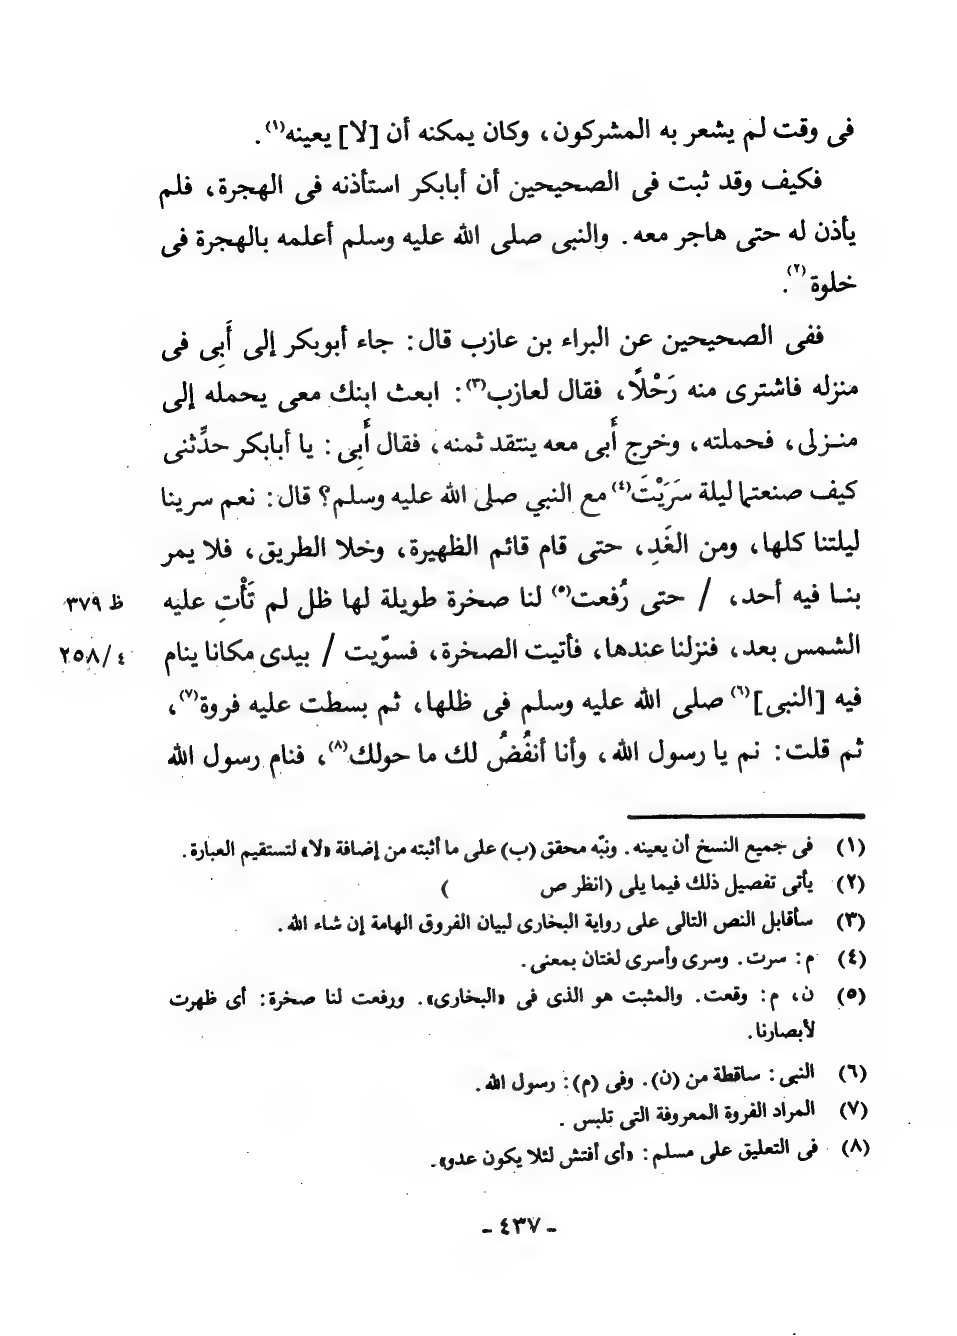 فى وقت لم يشعر به المشركون، وكان يمكنه أن [لا] يعينه(١).
فكيف وقد ثبت فى الصحيحين أن أبابكر استأذنه فى الهجرة، فلم
يأذن له حتى هاجر معه. والنبى صلى الله عليه وسلم أعلمه بالهجرة فى
خلوة(٢).
ففى الصحيحين عن البراء بن عازب قال: جاء أبوبكر إلى أَبِى فى
منزله فاشترى منه رَحْلًا، فقال لعازب(٣): ابعث ابنك معى يحمله إلى
منـزلى، فحملته، وخرج أَبى معه ينتقد ثمنه، فقال أَبِى: يا أبابكر حدِّثنى
كيف صنعتما ليلة سَرَيْتَ(٤) مع النبي صلى الله عليه وسلم؟ قال: نعم سرينا
ليلتنا كلها، ومن الغَدِ، حتى قام قائم الظهيرة، وخلا الطريق، فلا يمر
بنـا فيه أحد، / حتى رُفعت(٥) لنا صخرة طويلة لها ظل لم تَأْتِ عليه
ظ ٣٧٩
الشمس بعد، فنزلنا عندها، فأتيت الصخرة، فسوّيت / بيدى مكانا ينام
٤/ ٢٥٨
فيه [النبى](٦) صلى الله عليه وسلم فى ظلها، ثم بسطت عليه فروة(٧)،
ثم قلت: نم يا رسول الله، وأنا أنفُضُ لك ما حولك(٨)، فنام رسول الله
(١) فى جميع النسخ أن يعينه. ونبّه محقق (ب) على ما أثبته من إضافة «لا» لتستقيم العبارة.
(٢) يأتى تفصيل ذلك فيما يلى (انظر ص )
(٣) سأقابل النص التالى على رواية البخارى لبيان الفروق الهامة إن شاء الله.
(٤) م: سرت. وسرى وأسرى لغتان بمعنى.
(٥) ن، م: وقعت. والمثبت هو الذى فى «البخارى». ورفعت لنا صخرة: أى ظهرت
لأبصارنا.
(٦) النبى: ساقطة من (ن). وفى (م): رسول الله.
(٧) المراد الفروة المعروفة التى تلبس.
(٨) فى التعليق على مسلم: «أى أفتش لئلا يكون عدو».
- ٤٣٧ -